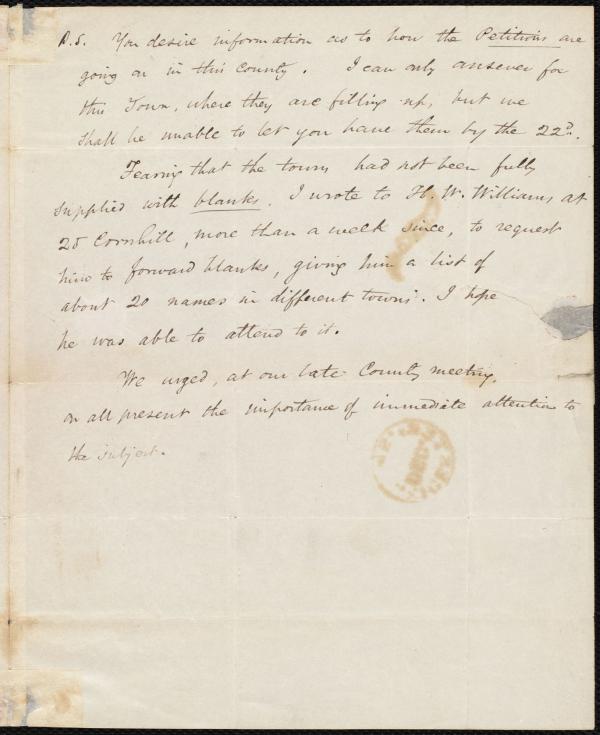 P.S. You desire information as to how the Petitions are
going on in this County. I can only answer for
this Town, where they are filling up, but we
shall be unable to let you have them by the 22d.
Fearing that the towns had not been fully
supplied with blanks, I wrote to H. W. Williams, at
25 Cornhill, more than a week since, to request
him to forward blanks, giving him a list of
about 20 names in different towns. I hope
he was able to attend to it.
We urged, at our late County meeting,
on all present the importance of immediate attention to
the subject.
DEC